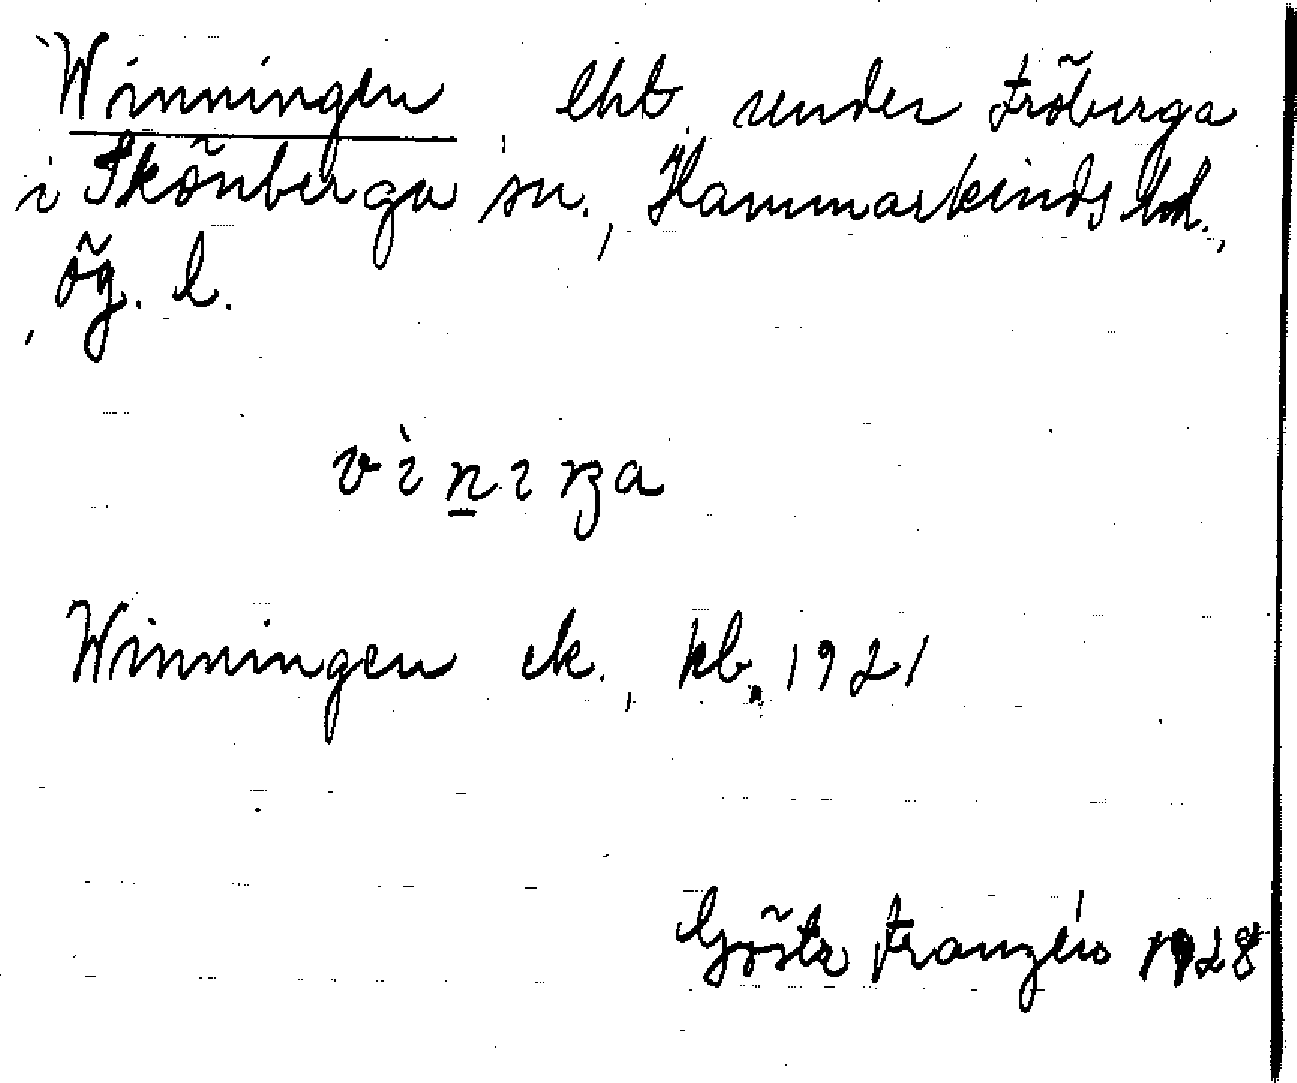 Winningen lht under Fröberga
i Skönberga sn., Hammarkinds hd.,
Ög. l.
vìnɩŋa
Winningen ek., kb. 1921
Gösta Franzén 1928